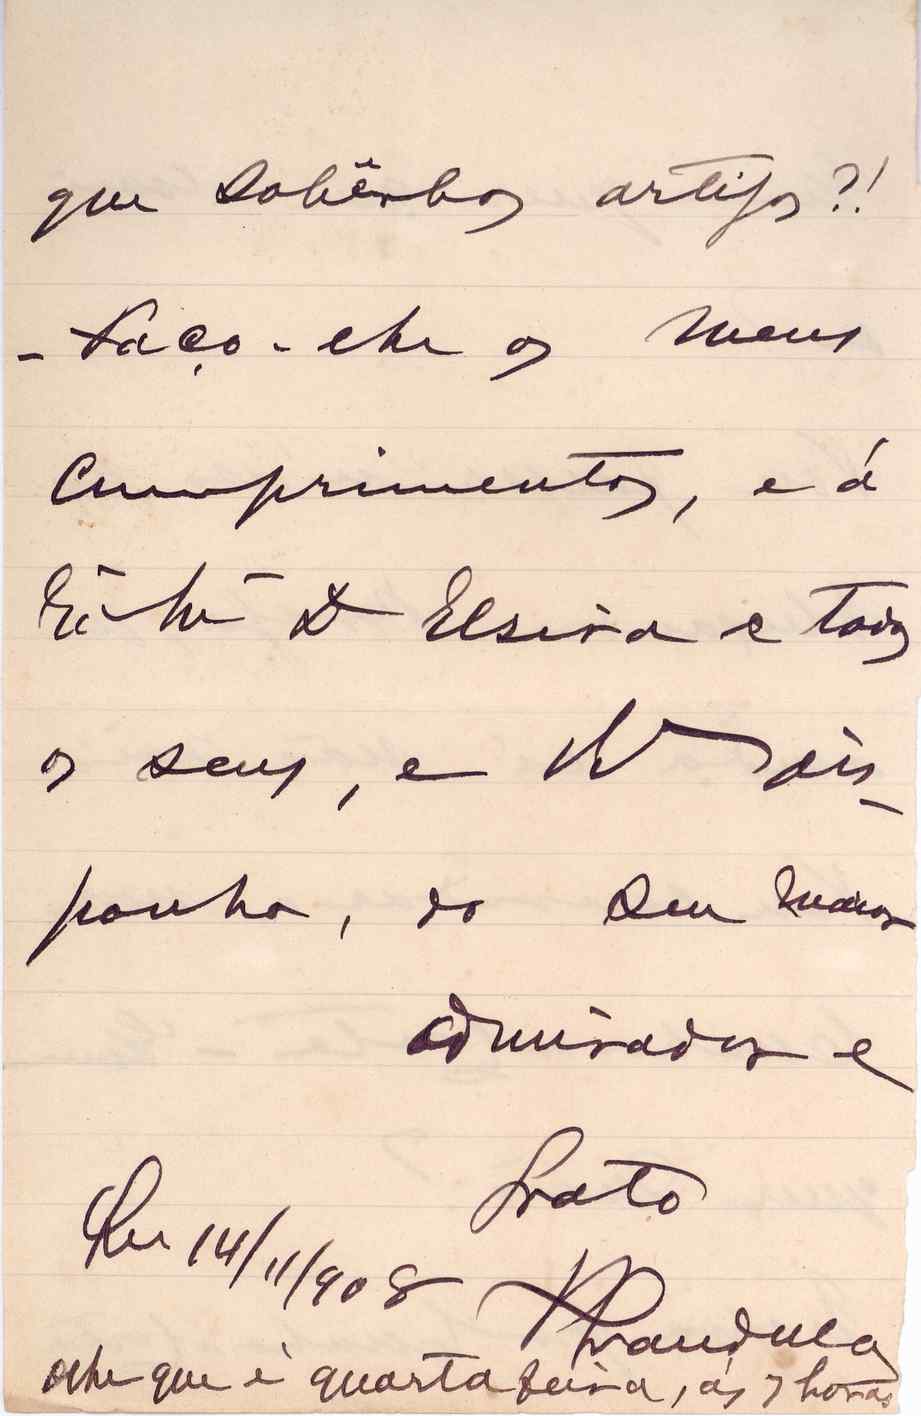 que sobêrbos artigos?!
- Faço-lhe os meus
cumprimentos, e á
Exª D Elzira e todos
os seus, e dis-
ponha, do seu maior
admirador e
Grato
14/11/908
Olhe que é quarta feira, ás 7 horas